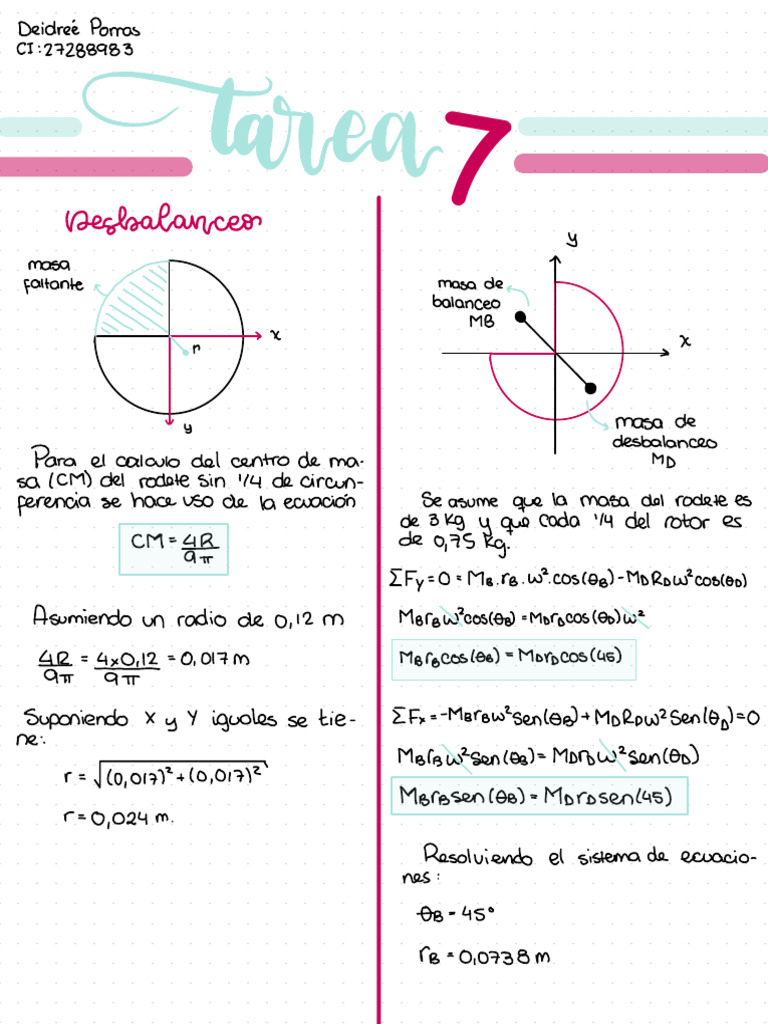 Deidreé Porras
CI: 27288983
tarea 7
Desbalanceo
masa
faltante
x
r
y
Para el calculo del centro de ma-
sa (CM) del rodete sin 1/4 de circun-
ferencia se hace uso de la ecuación
CM = 4R/9π
Asumiendo un radio de 0,12 m
4R/9π = 4x0,12/9π = 0,017 m
Suponiendo X y Y iguales se tie-
ne:
r = √(0,017)²+(0,017)²
r = 0,024 m.
y
masa de
balanceo
MB
x
masa de
desbalanceo
MD
Se asume que la masa del rodete es
de 3 kg y que cada 1/4 del rotor es
de 0,75 kg.
ΣFy = 0 = MB.rB.ω².cos(θB) - MDRDω²cos(θD)
MBrBω²cos(θB) = MDrDcos(θD)ω²
MBrBcos(θB) = MDrDcos(45)
ΣFx = -MBrBω²Sen(θB) + MDRDω²Sen(θD) = 0
MBrBω²Sen(θB) = MDrDω²sen(θD)
MBrBsen(θB) = MDrDsen(45)
Resolviendo el sistema de ecuacio-
nes:
θB = 45°
rB = 0,0738 m